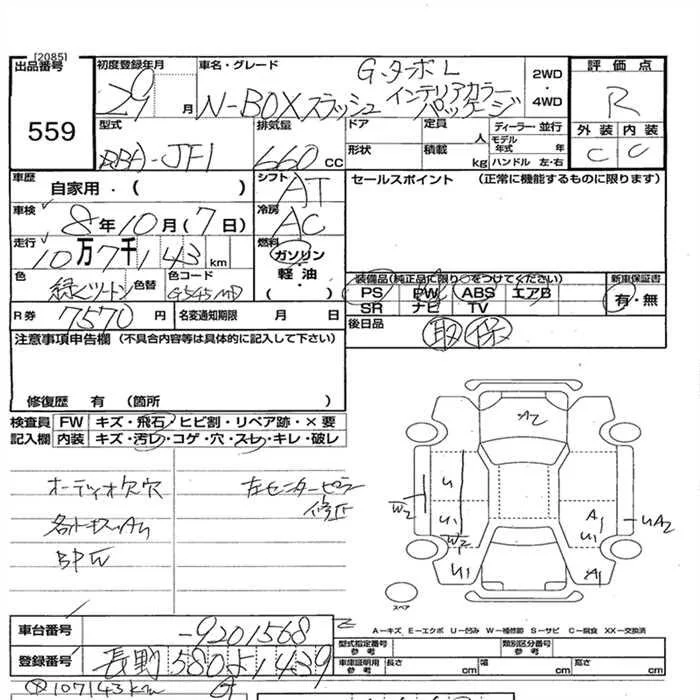 [2085]
出品番号
559
初度登録年月
29 月
車名・グレード
G.ターボL
N-BOXスラッシュ インテリアカラーパッケージ
2WD
・
4WD
評価点
R
外装 内装
C C
型式
DBA-JF1
排気量
660 CC
ドア
形状
定員 人
積載 kg
ディーラー・並行
モデル年式 年
ハンドル 左・右
車歴
自家用・( )
シフト
AT
セールスポイント (正常に機能するものに限ります)
車検
8年10月(7日)
冷房
AC
走行
10万7千143km
燃料
ガソリン
・
軽油
・
( )
色
緑ツートン
色替
色コード
G545MD
装備品(純正品に限り○をつけてください)
PS PW ABS エアB
SR ナビ TV
新車保証書
有・無
R券 7570円
名変通知期限 月 日
後日品
取 保
注意事項申告欄 (不具合内容等は具体的に記入して下さい)
修復歴 有 (箇所 )
検査員記入欄
FW キズ・飛石・ヒビ割・リペア跡・×要
内装 キズ・汚レ・コゲ・穴・スレ・キレ・破レ
オーディオ欠穴
左センターピラー
修正
A2
U
U1
W2
W2
U1
A1
U1
A1
UA2
スペア
車台番号
-9201568
登録番号
長野580さ1439
A-キズ E-エクボ U-凹み W-補修跡 S-サビ C-腐食 XX-交換済
型式指定番号参考
類別区分番号参考
車庫証明用参考 長さ cm 幅 cm 高さ cm
107143km